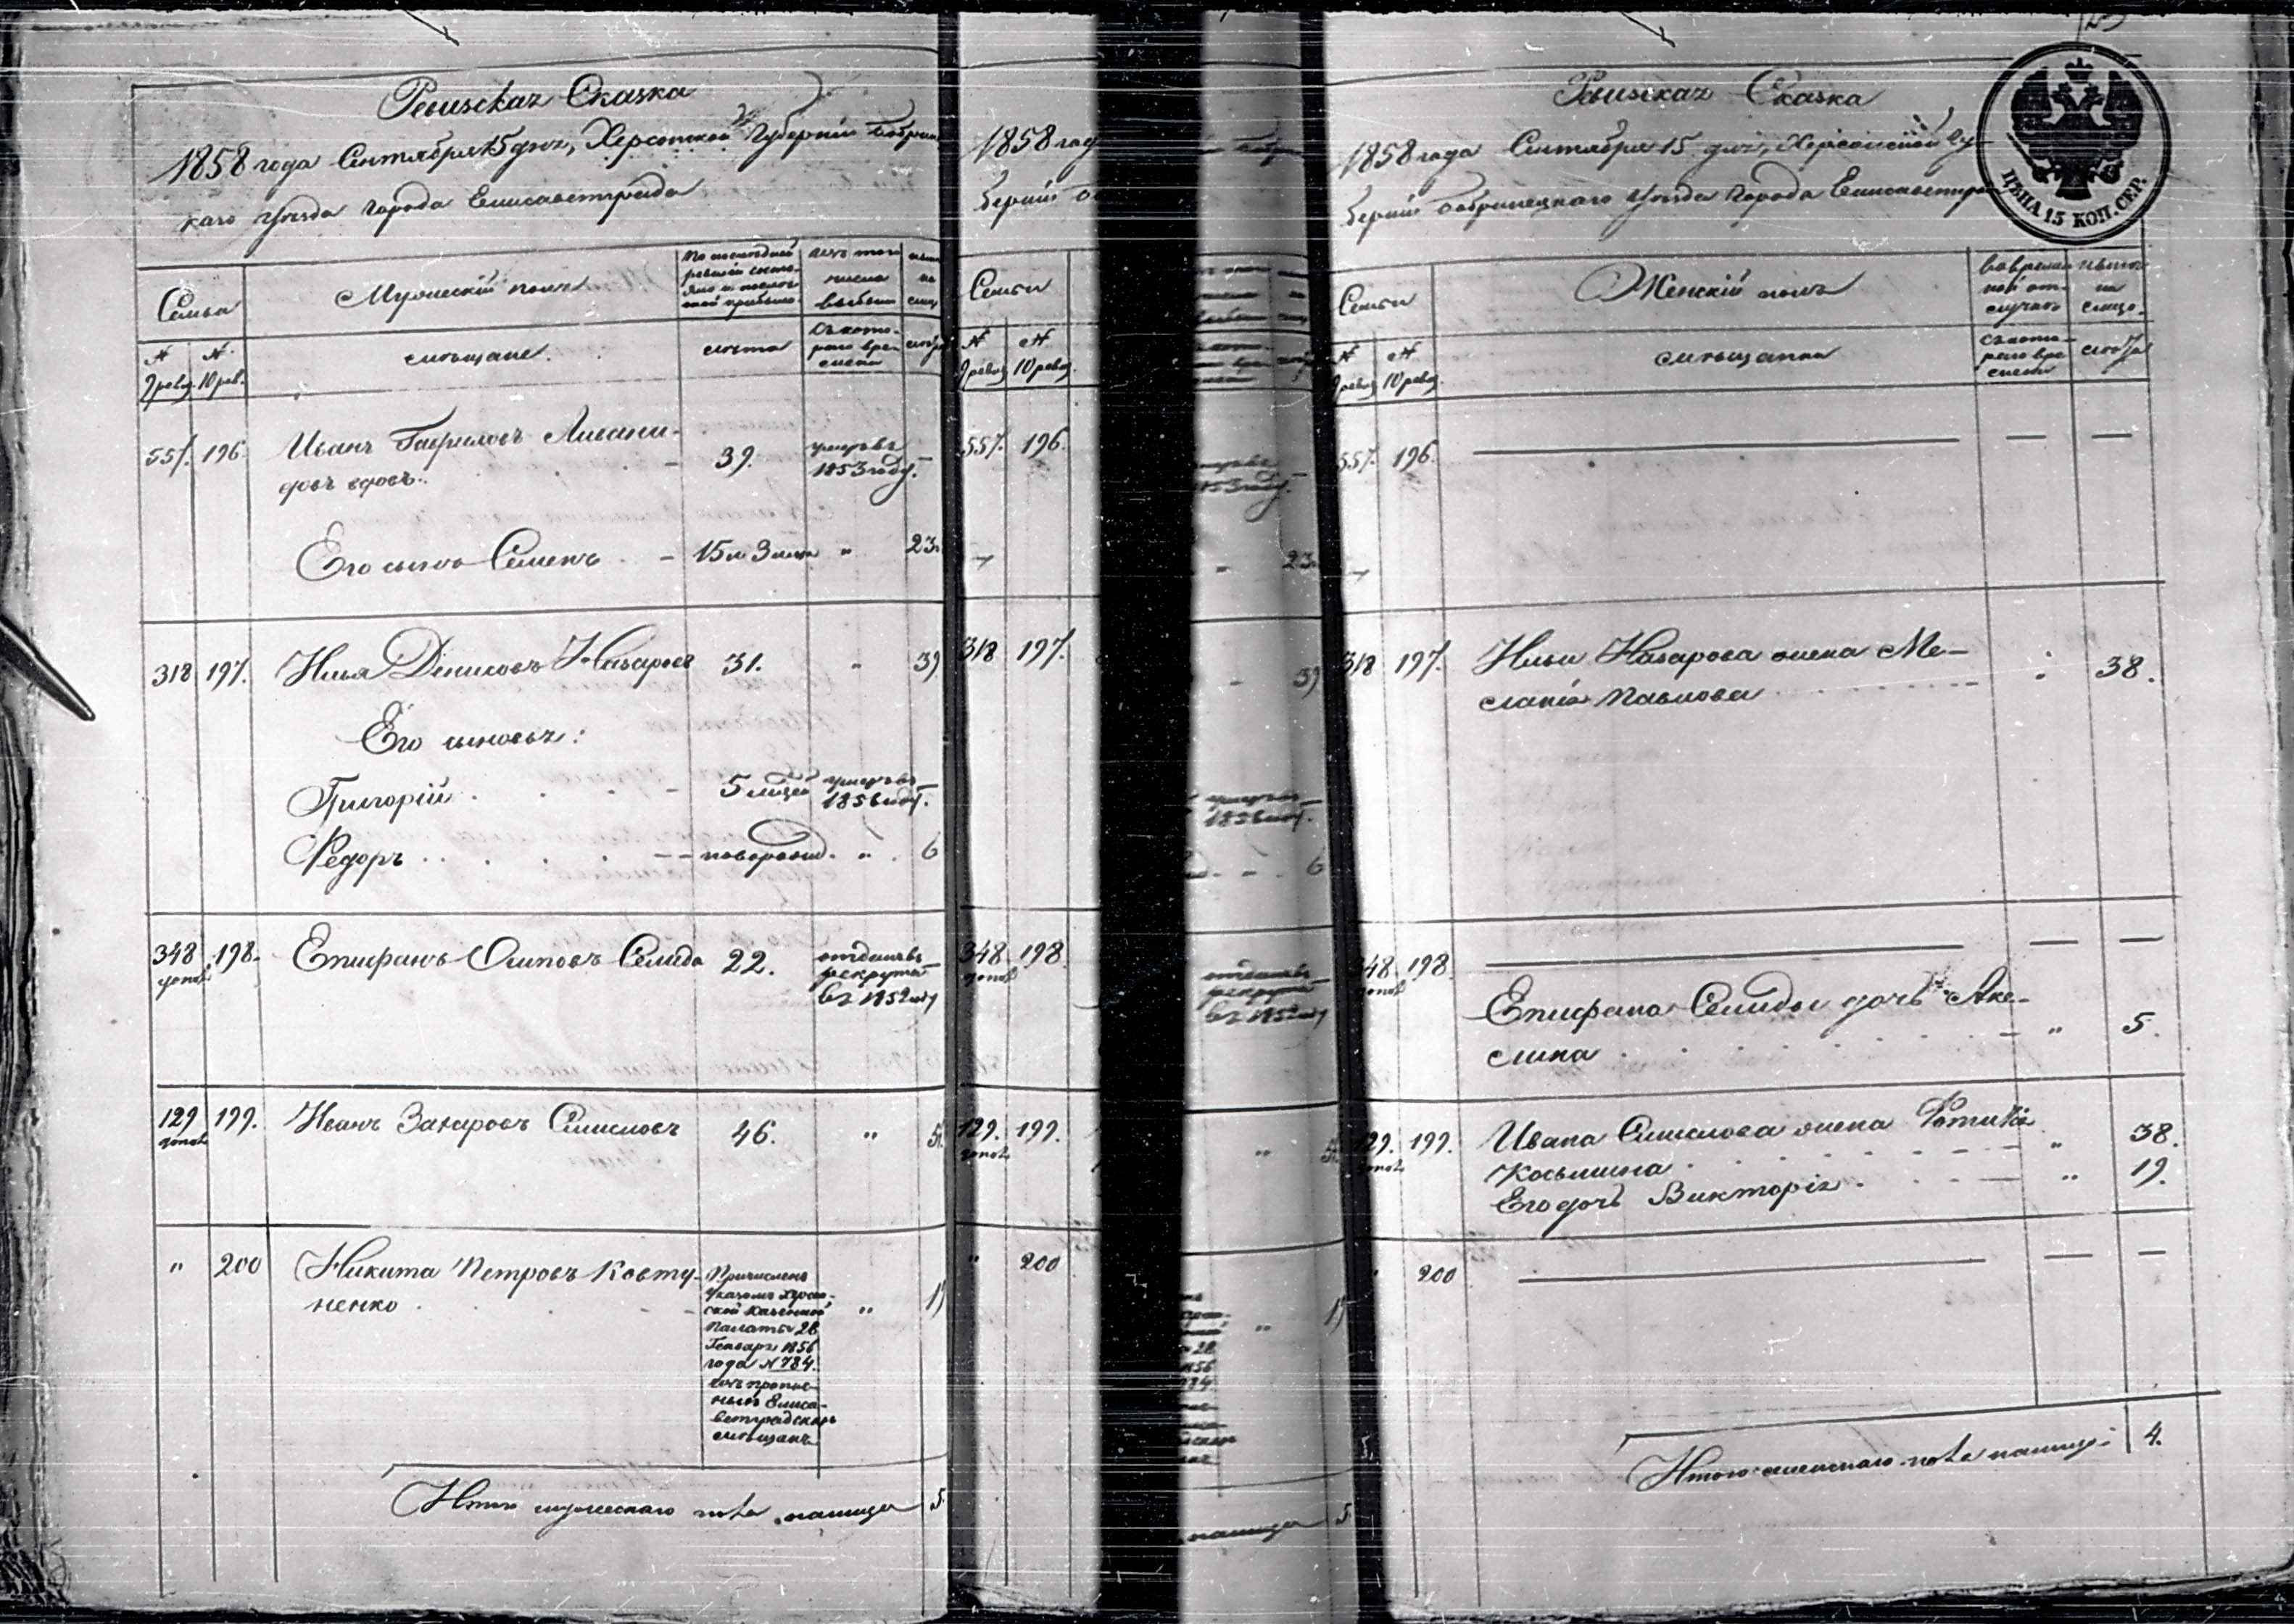 Ревизская Сказка
1858 года Сентября 15 дня, Херсонской Губернии Бобрин
каго уезда города Елисаветграда
Семьи
Мужеский полъ
По последней
ревизии состо-
яло и после
той прибыло
Изъ того
числа
выбыло
ныне
на
лицо
№
9 ревиз.
№
10 рев.
мещане.
лета
Съ кото-
раго вре-
мени
557. 196. Иванъ Гавриловъ
довъ вдовъ. 39. умеръ въ
1853 году. —
Его сынъ Семенъ 15 и 3 меся " 23.
318 197. Илья Денисовъ Назаровъ 31. " 39
Его сыновья:
Григорій 5 месяц умеръ въ
1856 году. —
Федоръ новорожд. " 6
348 198. Епифанъ Осиповъ Селида 22. отданъ въ
рекруты
въ 1852 году
129 199. Иванъ Захаровъ 46. "
" 200 Никита Петровъ Ковту-
ненко
Причисленъ
Указомъ Херсон-
ской Казенной
Палаты 28
Генваря 1856
года № 784.
изъ пропис-
ныхъ Елиса-
ветградскихъ
мещанъ
"
Итого мужескаго пола налицо 5.
1858 год
берніи Бо
Семьи
№
9 ревиз
№
10 ревиз.
557. 196.
318 197.
348 198
129. 199.
" 200
23
Ревизская Сказка
1858 года Сентября 15 дня, Херсонской Гу-
берніи Бобринецкаго уезда города Елисаветгра
ЦѢНА 15 КОП. СЕР.
Семьи
Женскій полъ
Во времен-
ной от-
лучке
ныне
на
лицо.
№
9 ревиз
№
10 ревиз.
мещанки
Съ кото-
раго вре
мени
лета
557. 196. — —
318 197. Ильи Назарова жена Ме-
ланія Павлова " 38.
348 198 — —
Епифана Селиды дочь Аку-
лина " 5.
129. 199. Ивана жена
Косьмина " 38.
Его дочь Викторія " 19.
" 200 — —
Итого женскаго пола налицо 4.